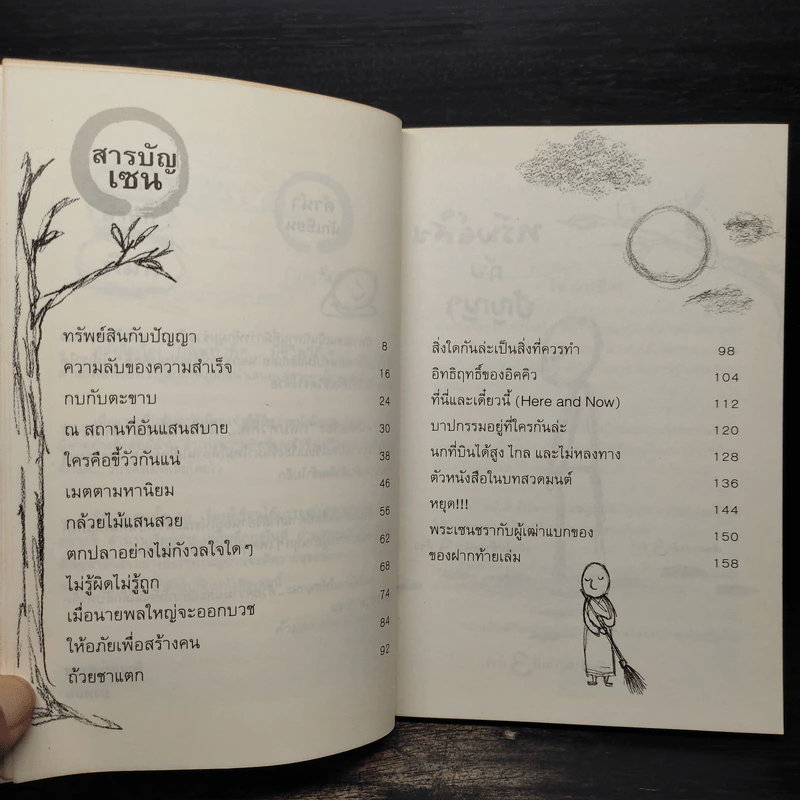 สารบัญ
เซน
ทรัพย์สินกับปัญญา 8
ความลับของความสำเร็จ 16
กบกับตะขาบ 24
ณ สถานที่อันแสนสบาย 30
ใครคือขี้วัวกันแน่ 38
เมตตามหานิยม 46
กล้วยไม้แสนสวย 56
ตกปลาอย่างไม่กังวลใจใดๆ 62
ไม่รู้ผิดไม่รู้ถูก 68
เมื่อนายพลใหญ่จะออกบวช 74
ให้อภัยเพื่อสร้างคน 84
ถ้วยชาแตก 92
สิ่งใดกันล่ะเป็นสิ่งที่ควรทำ 98
อิทธิฤทธิ์ของอิคคิว 104
ที่นี่และเดี๋ยวนี้ (Here and Now) 112
บาปกรรมอยู่ที่ใครกันล่ะ 120
นกที่บินได้สูง ไกล และไม่หลงทาง 128
ตัวหนังสือในบทสวดมนต์ 136
หยุด!!! 144
พระเซนชรากับผู้เฒ่าแบกของ 150
ของฝากท้ายเล่ม 158